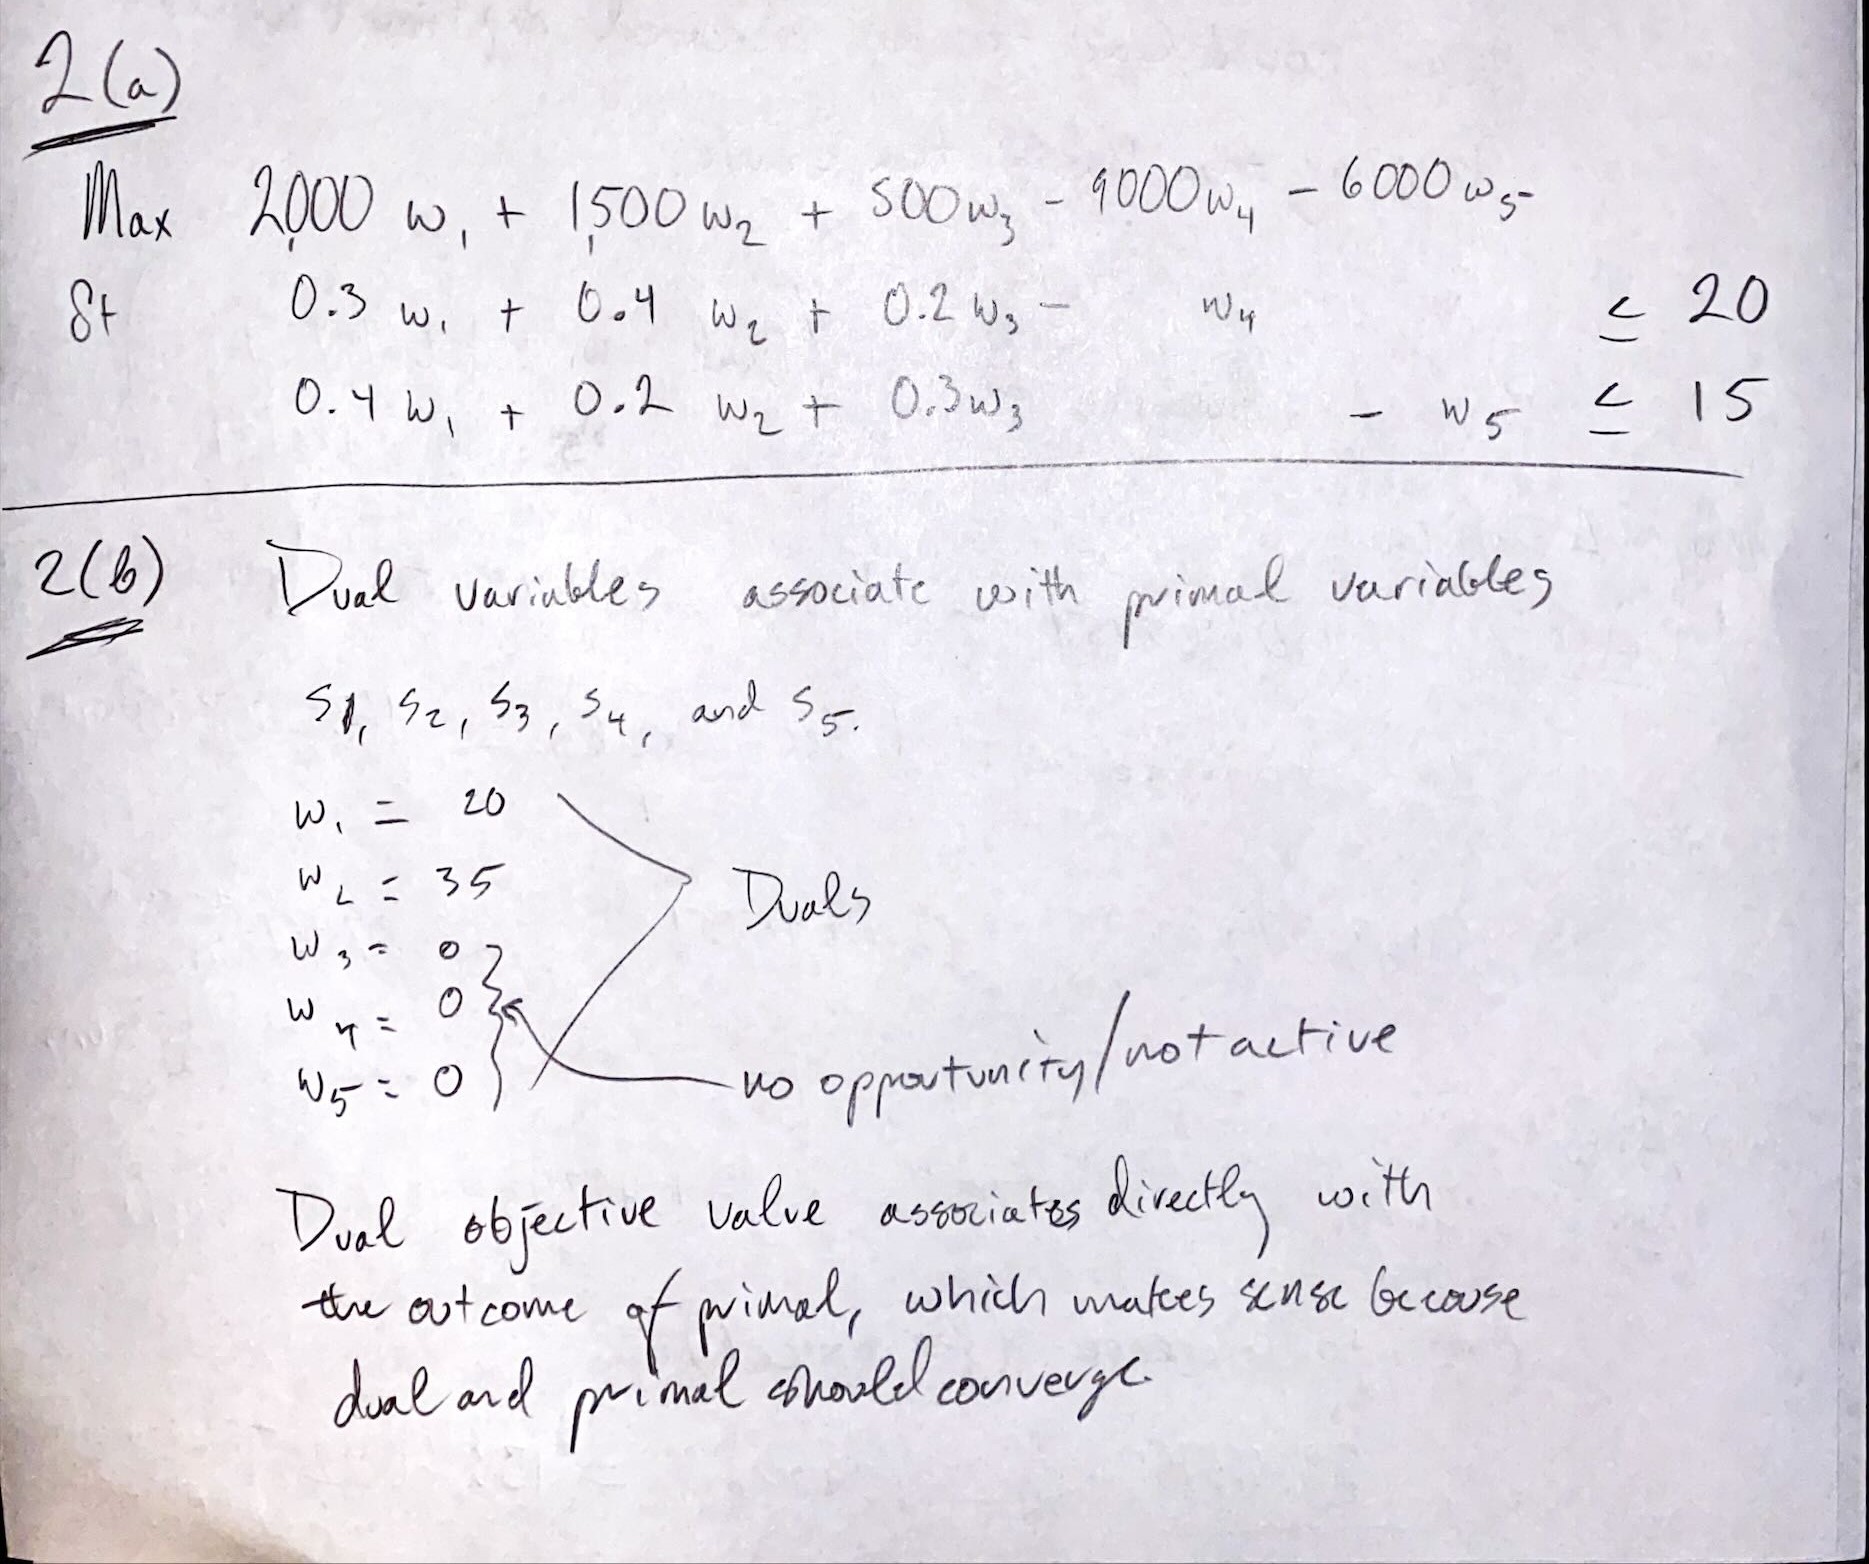 2(a)
Max 2,000 w₁ + 1,500 w₂ + 500 w₃ - 9000 w₄ - 6000 w₅
St 0.3 w₁ + 0.4 w₂ + 0.2 w₃ - w₄ ≤ 20
0.4 w₁ + 0.2 w₂ + 0.3 w₃ - w₅ ≤ 15
2(b) Dual variables associate with primal variables
s₁, s₂, s₃, s₄, and s₅.
w₁ = 20
w₂ = 35
Duals
w₃ = 0
w₄ = 0
no opportunity/not active
w₅ = 0
Dual objective value associates directly with
the outcome of primal, which makes sense because
dual and primal should converge.